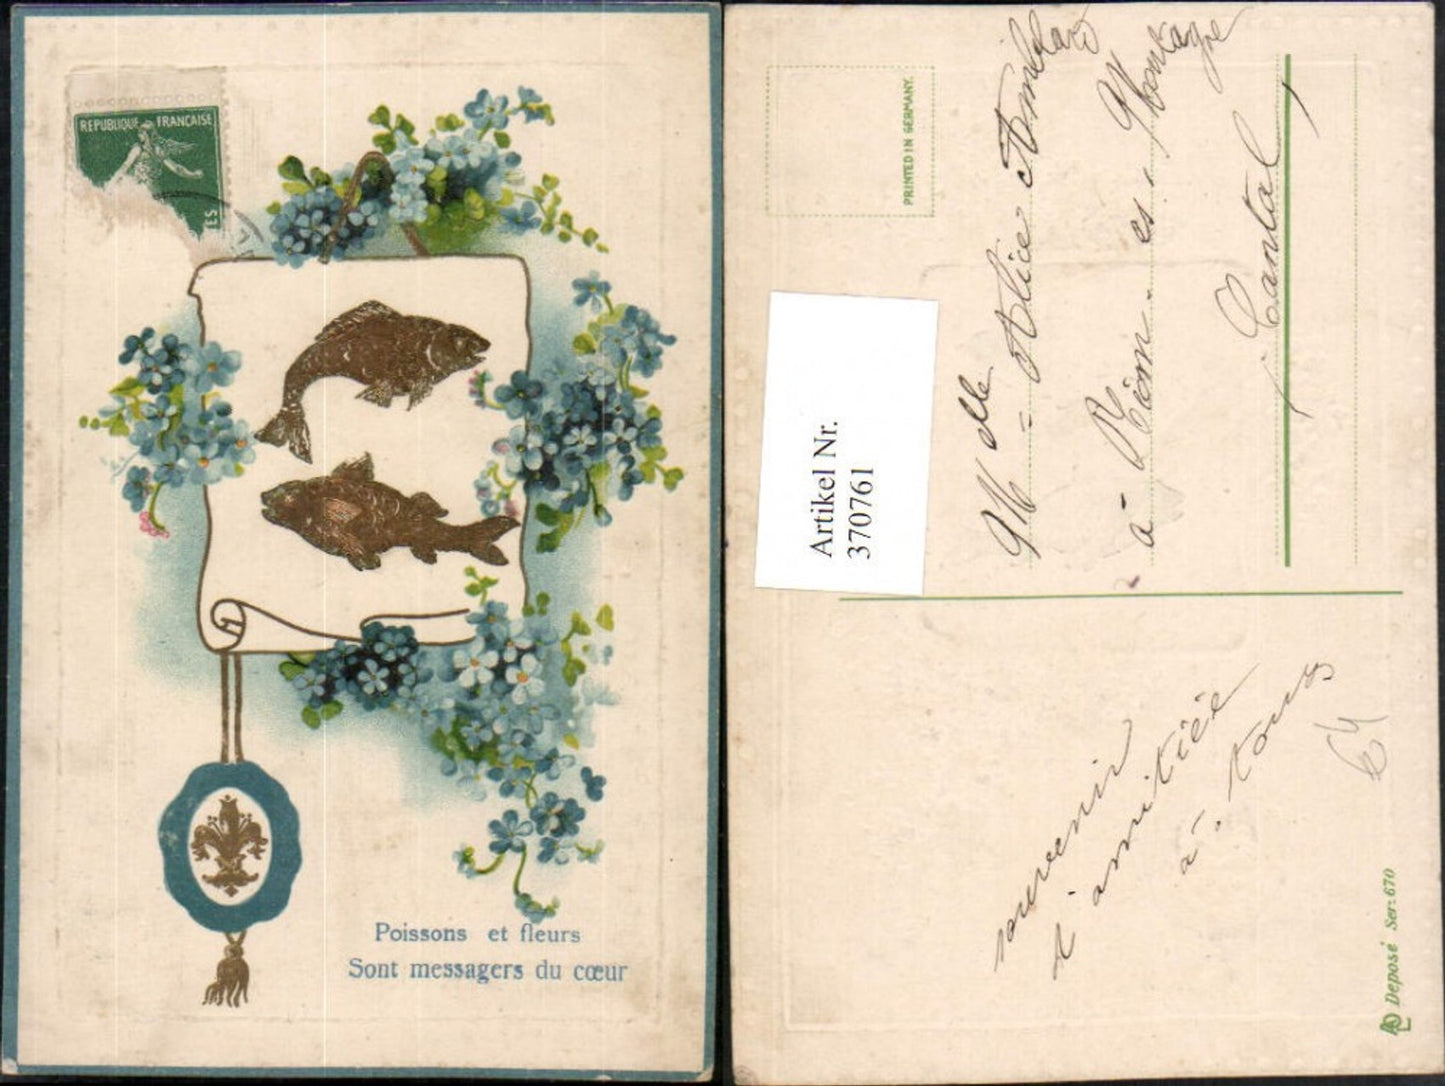 REPUBLIQUE FRANÇAISE
ES
Poissons et fleurs
Sont messagers du cœur
PRINTED IN GERMANY.
Artikel Nr.
370761
Mlle = Alice
à Riom. es. Montagne
Cantal
souvenir
d'amitiéé
à. tous
Deposé Ser: 670